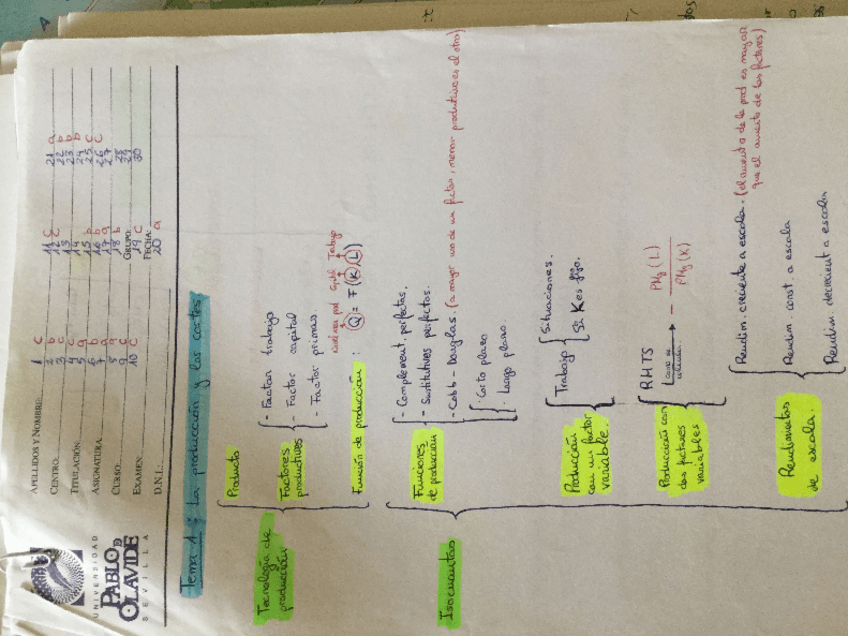 UNIVERSIDAD
PABLO DE
OLAVIDE
SEVILLA
APELLIDOS Y NOMBRE:
CENTRO:
TITULACIÓN:
ASIGNATURA:
CURSO:
GRUPO:
EXAMEN:
FECHA:
D.N.I.:
1 c
2 b
3 c
4 c
5 a
6 b
7 a
8
9 c
10 c
11 c
12 c
13
14
15 b
16 b
17 a
18 b
19 c
20 a
21 a
22 b
23 a
24 b
25 c
26 c
27
28
29
30
Tema 1: La producción y los costes
Tecnología de producción
Producto
Factores productivos
- Factor trabajo
- Factor capital
- Factor primas
Función de producción : Q = F (K, L)
Trabajo
Isocuantas
Funciones de producción
- Complement. perfectos.
- Sustitutivos perfectos.
- Cobb - Douglas. (a mayor uso de un factor, menor productivo es el otro)
· Corto plazo
· Largo plazo.
Producción con un factor variable.
Trabajo
Situaciones.
Si K es fijo.
Producción con dos factores variables
RMTS
- PMg (L)
PMg (K)
Rendimientos de escala
Rendim. creciente a escala. (el aumento de la prod es mayor
que el aumento de los factores)
Rendim. const. a escala
Rendim. decrecient a escala